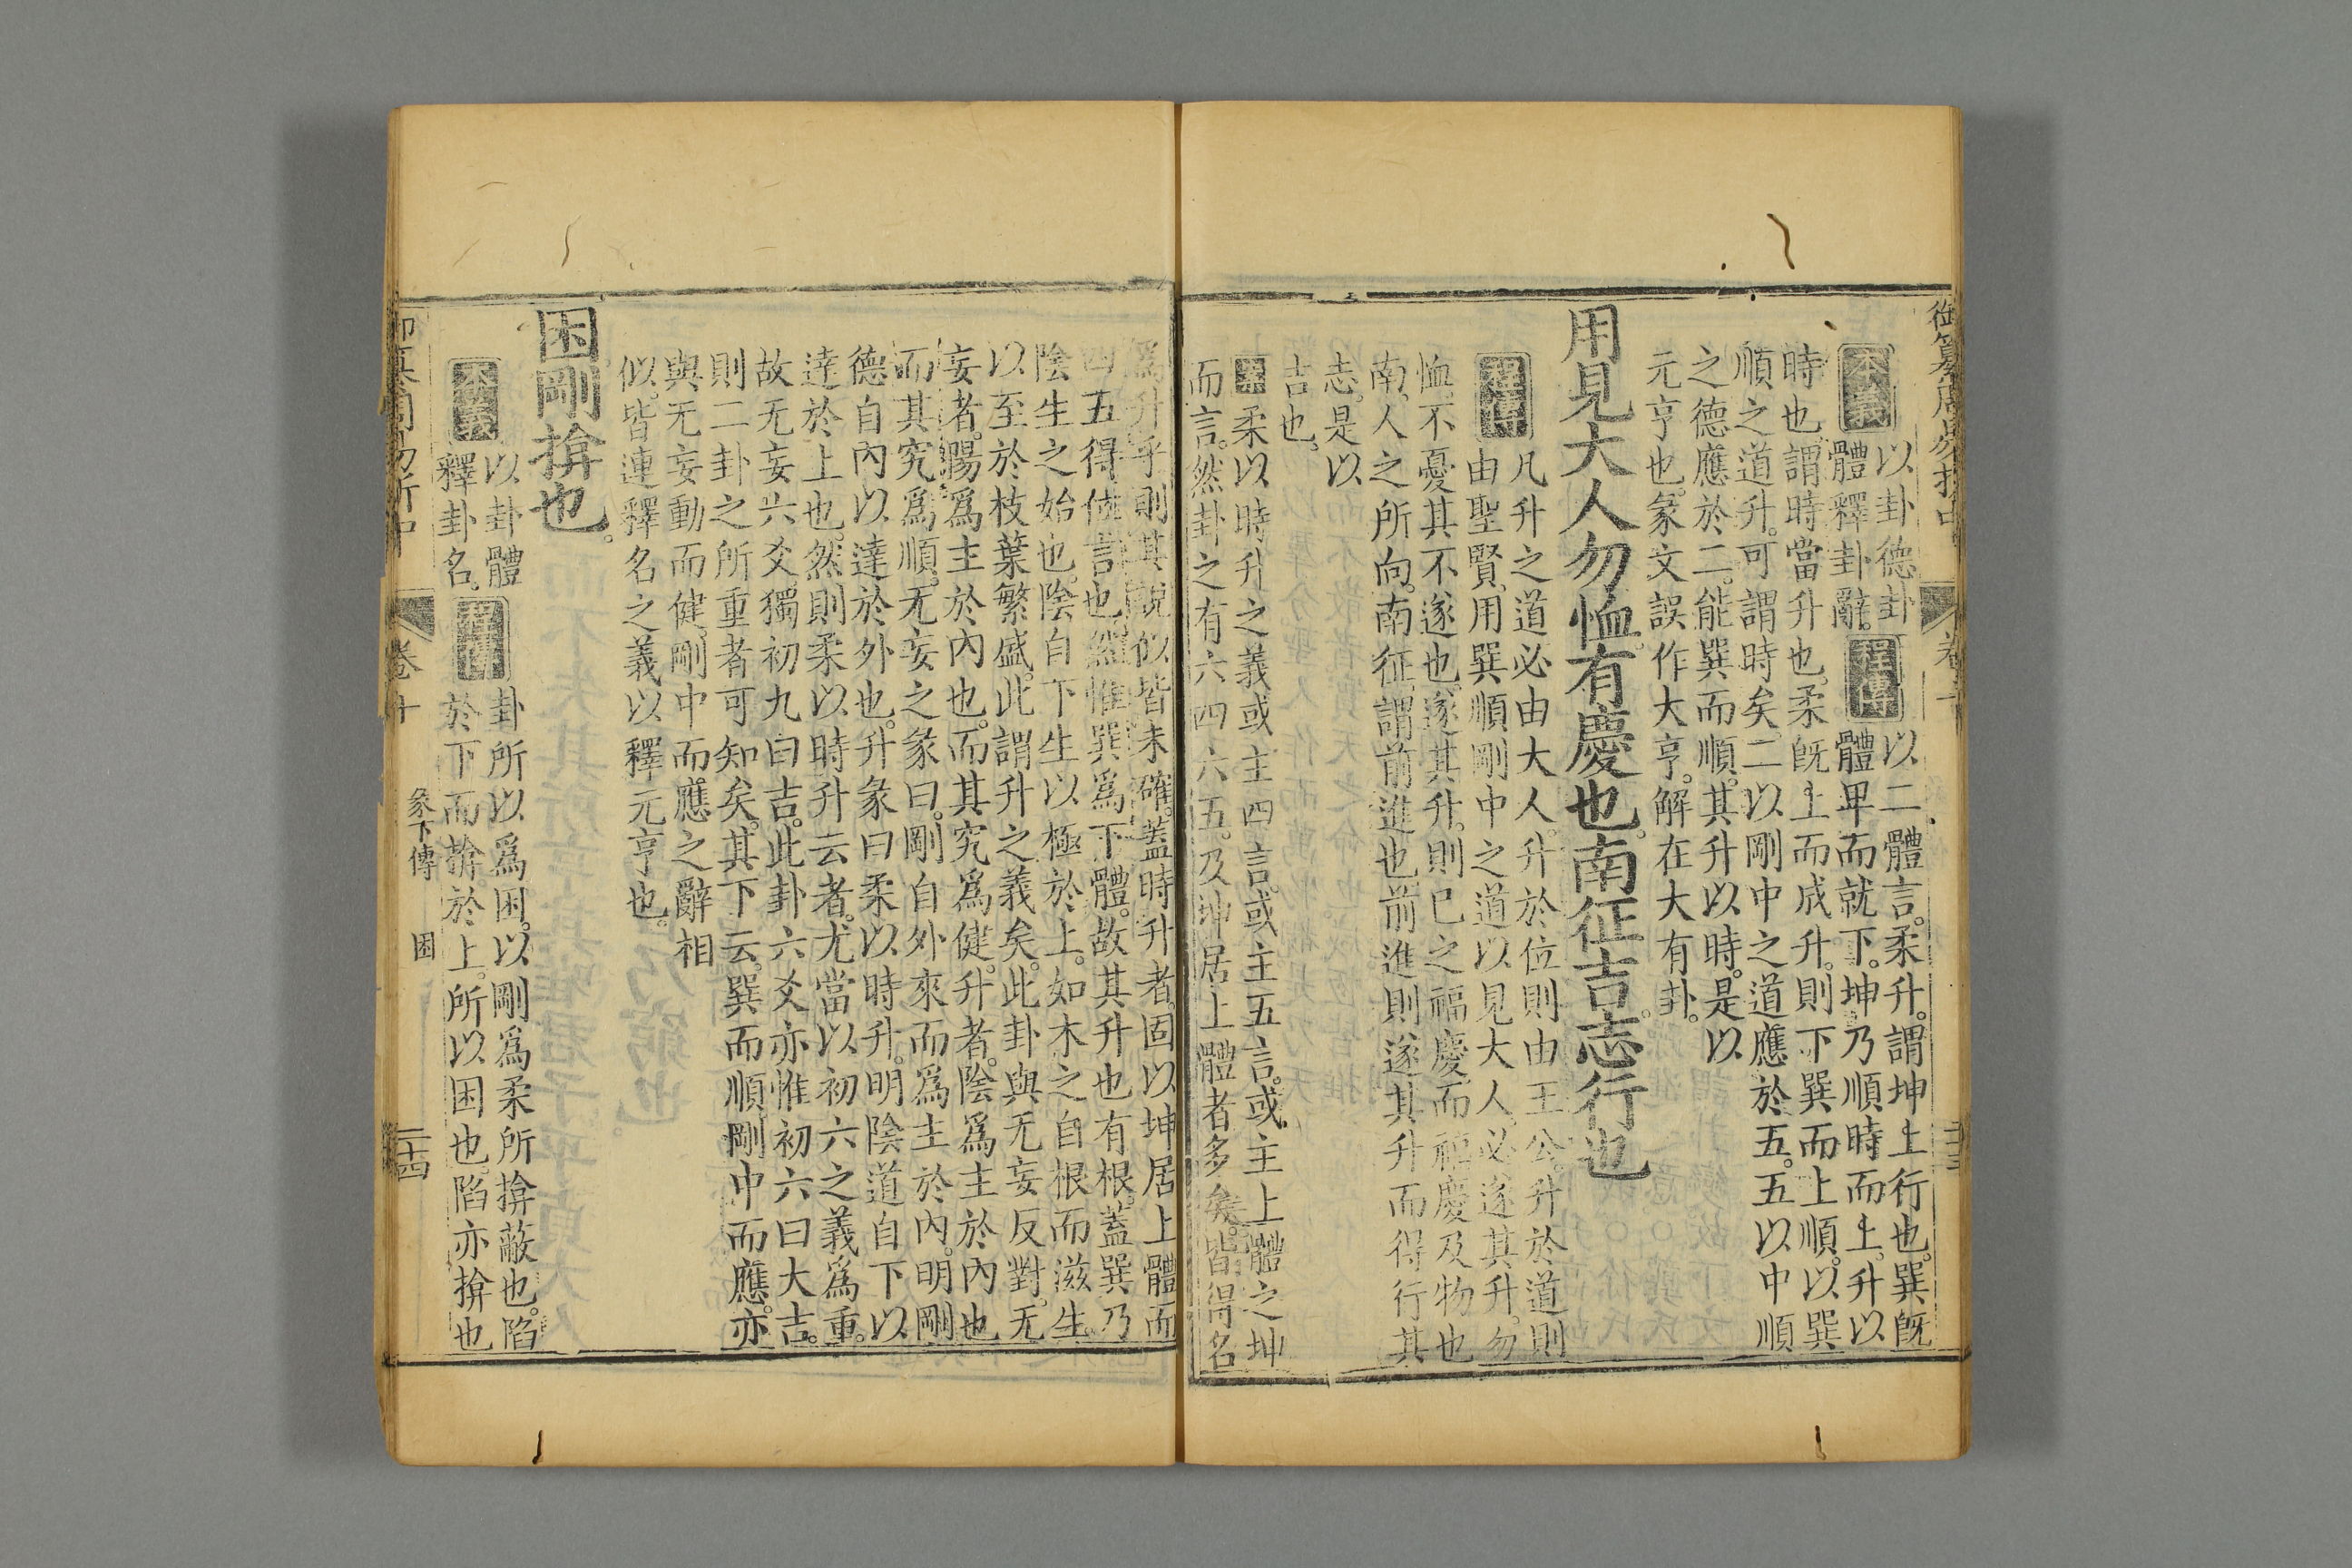 御纂周易折中
卷十
本義
以卦德卦
體釋卦辭。
程傳
以二體言。柔升。謂坤上行也。巽既
體卑而就下。坤乃順時而上。升以
時也。謂時當升也。柔既上而成升。則下巽而上順。以巽
順之道升。可謂時矣。二以剛中之道應於五。五以中順
之德應於二。能巽而順。其升以時。是以
元亨也。彖文誤作大亨。解在大有卦。
用見大人勿恤有慶也。南征吉。志行也
程傳
凡升之道必由大人。升於位則由王公。升於道則
由聖賢。用巽順剛中之道以見大人。必遂其升。勿
恤。不憂其不遂也。遂其升。則己之福慶。而福慶及物也
南。人之所向。南征。謂前進也前進則遂其升而得行其
志。是以
吉也。
案
柔以時升之義或主四言。或主五言。或主上體之坤
而言。然卦之有六四六五。及坤居上體者多矣。皆得名
爲升乎則其說似皆未確。蓋時升者。固以坤居上體而
四五得位言也。然惟巽爲下體。故其升也有根。蓋巽乃
陰生之始也。陰自下生以極於上。如木之自根而滋生。
以至於枝葉繁盛。此謂升之義矣。此卦與无妄反對。无
妄者。陽爲主於內也。而其究爲健。升者。陰爲主於內也
而其究爲順。无妄之彖曰。剛自外來而爲主於內。明剛
德自內以達於外也。升彖曰柔以時升。明陰道自下以
達於上也。然則柔以時升云者。尤當以初六之義爲重。
故无妄六爻。獨初九曰吉。此卦六爻亦惟初六曰大吉。
則二卦之所重者可知矣。其下云。巽而順剛中而應。亦
與无妄動而健。剛中而應之辭相
似。皆連釋名之義以釋元亨也。
困剛揜也。
本義
以卦體
釋卦名。
程傳
卦所以爲困。以剛爲柔所揜蔽也。陷
於下而揜於上。所以困也陷亦揜也
卷十
彖下傳
困
二十四